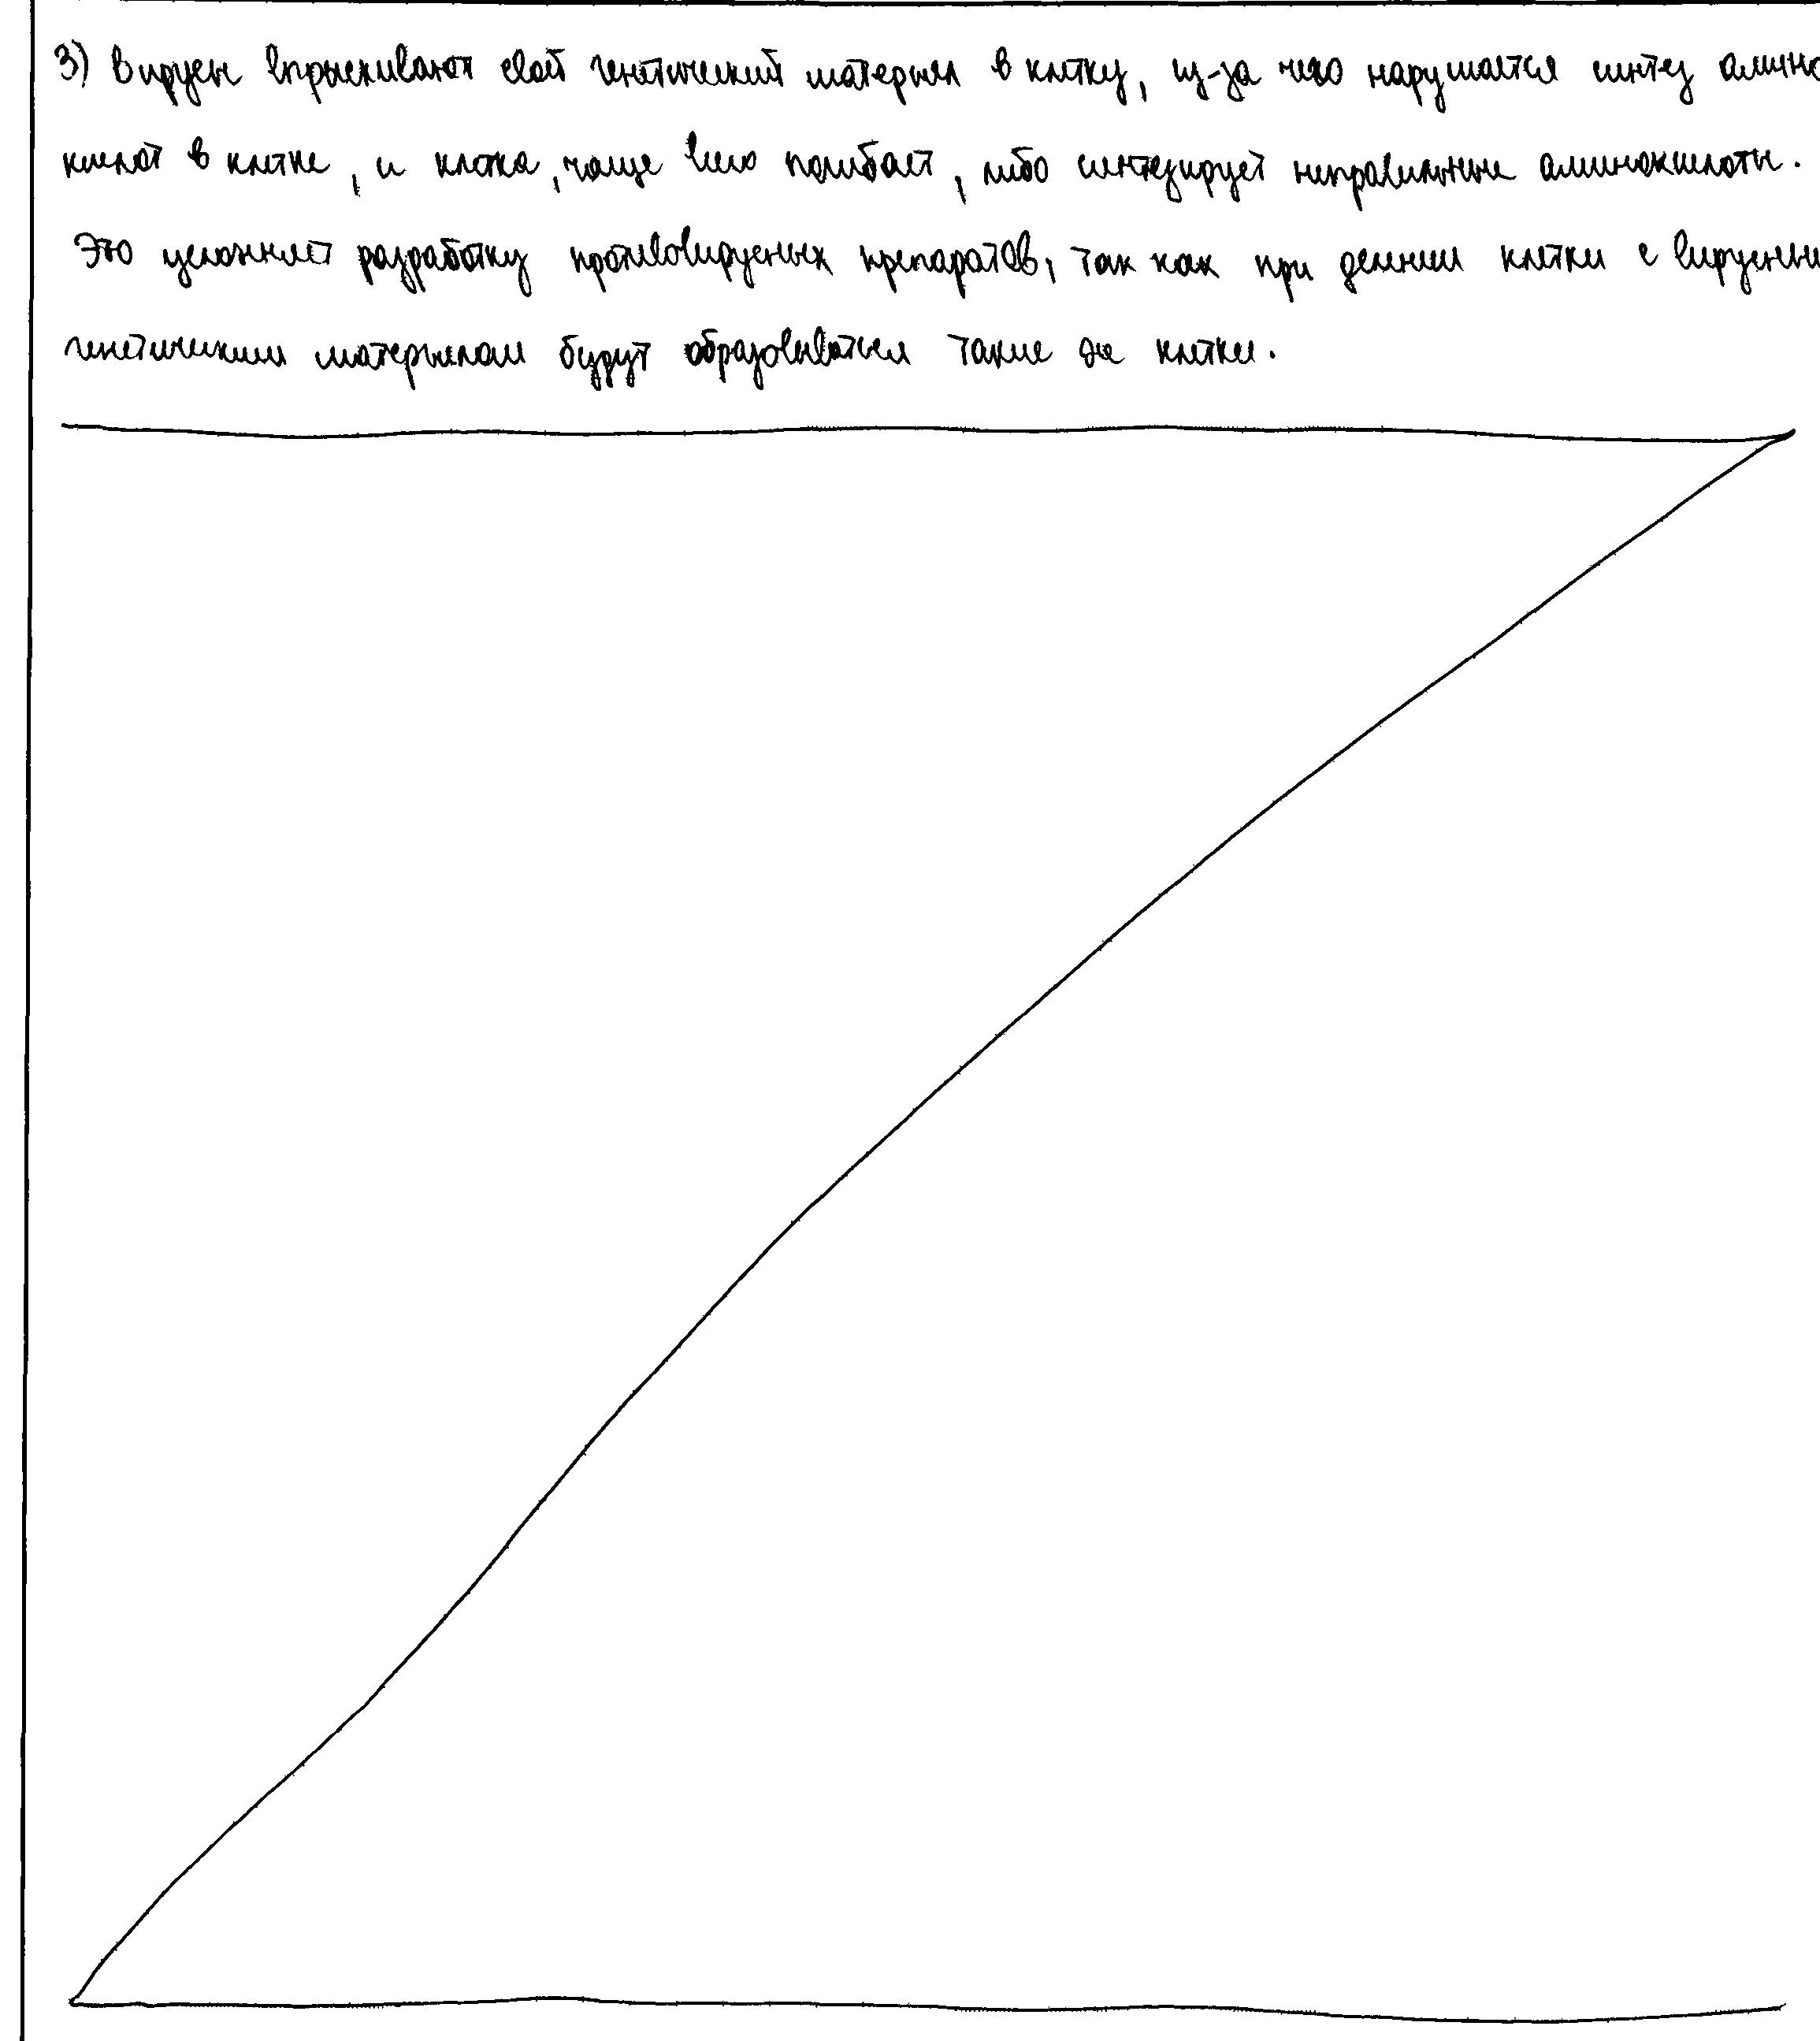 3) Вирусы впрыскивают свой генетический материал в клетку, из-за чего нарушается синтез амино
кислот в клетке, и клетка, чаще всего погибает, либо синтезирует неправильные аминокислоты.
Это усложняет разработку противовирусных препаратов, так как при делении клетки с вирусным
генетическим материалом будут образовываться такие же клетки.